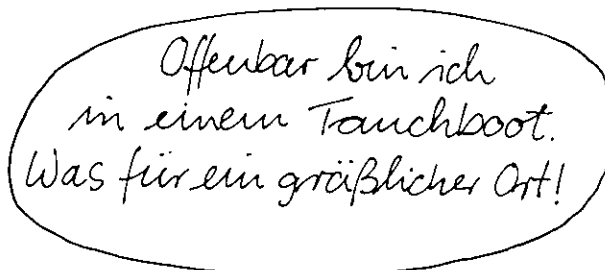 Offenbar bin ich
in einem Tauchboot.
Was für ein gräßlicher Ort!